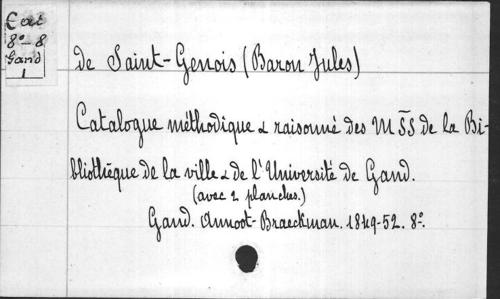 Cat
8°-8
Gand
1
de Saint-Genois (Baron Jules)
Catalogue méthodique & raisonné des MSS de la Bi-
bliothèque de la ville & de l'Université de Gand.
(avec 2 planches.)
Gand. Annoot-Braeckman. 1849-52. 8°.